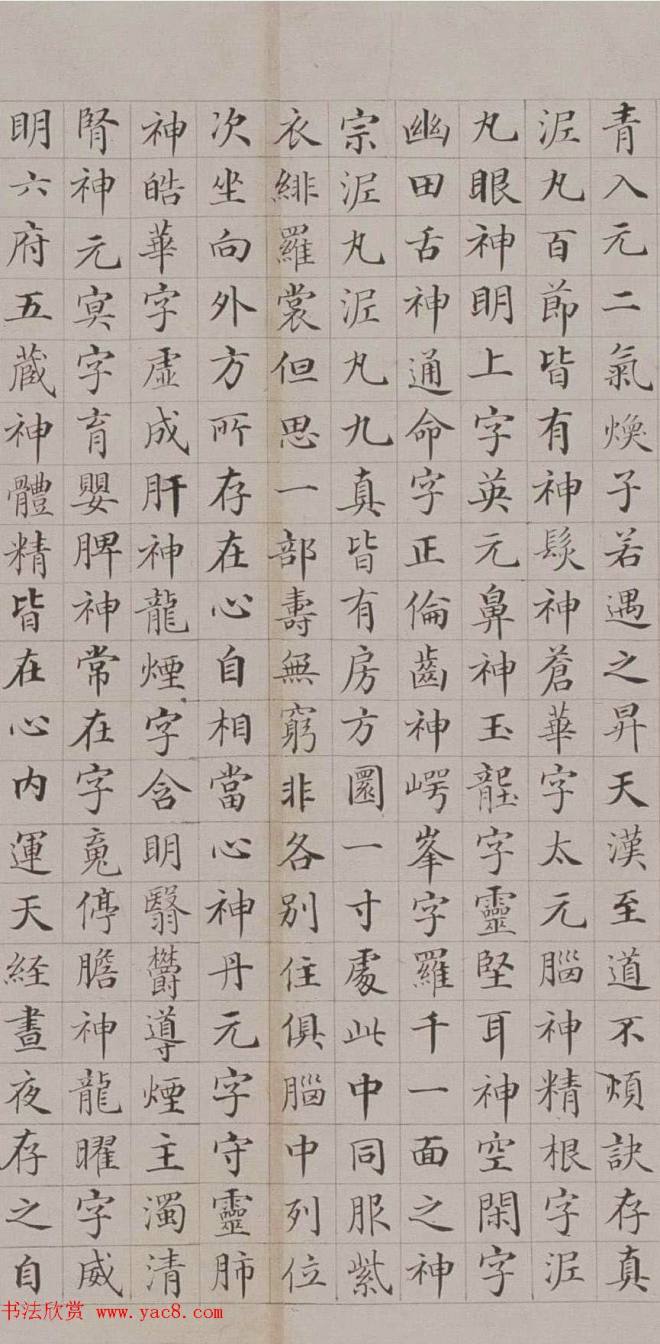 青入元二氣煥子若遇之昇天漢至道不煩訣存真
泥丸百節皆有神髮神蒼華字太元腦神精根字泥
丸眼神明上字英元鼻神玉壟字靈堅耳神空閑字
幽田舌神通命字正倫齒神崿峯字羅千一面之神
宗泥丸泥丸九真皆有房方圓一寸處此中同服紫
衣緋羅裳但思一部壽無窮非各別住俱腦中列位
次坐向外方所存在心自相當心神丹元字守靈肺
神皓華字虛成肝神龍煙字含明翳欝導煙主濁清
腎神元冥字育嬰脾神常在字魂停膽神龍曜字威
明六府五藏神體精皆在心內運天経晝夜存之自
书法欣赏 www.yac8.com